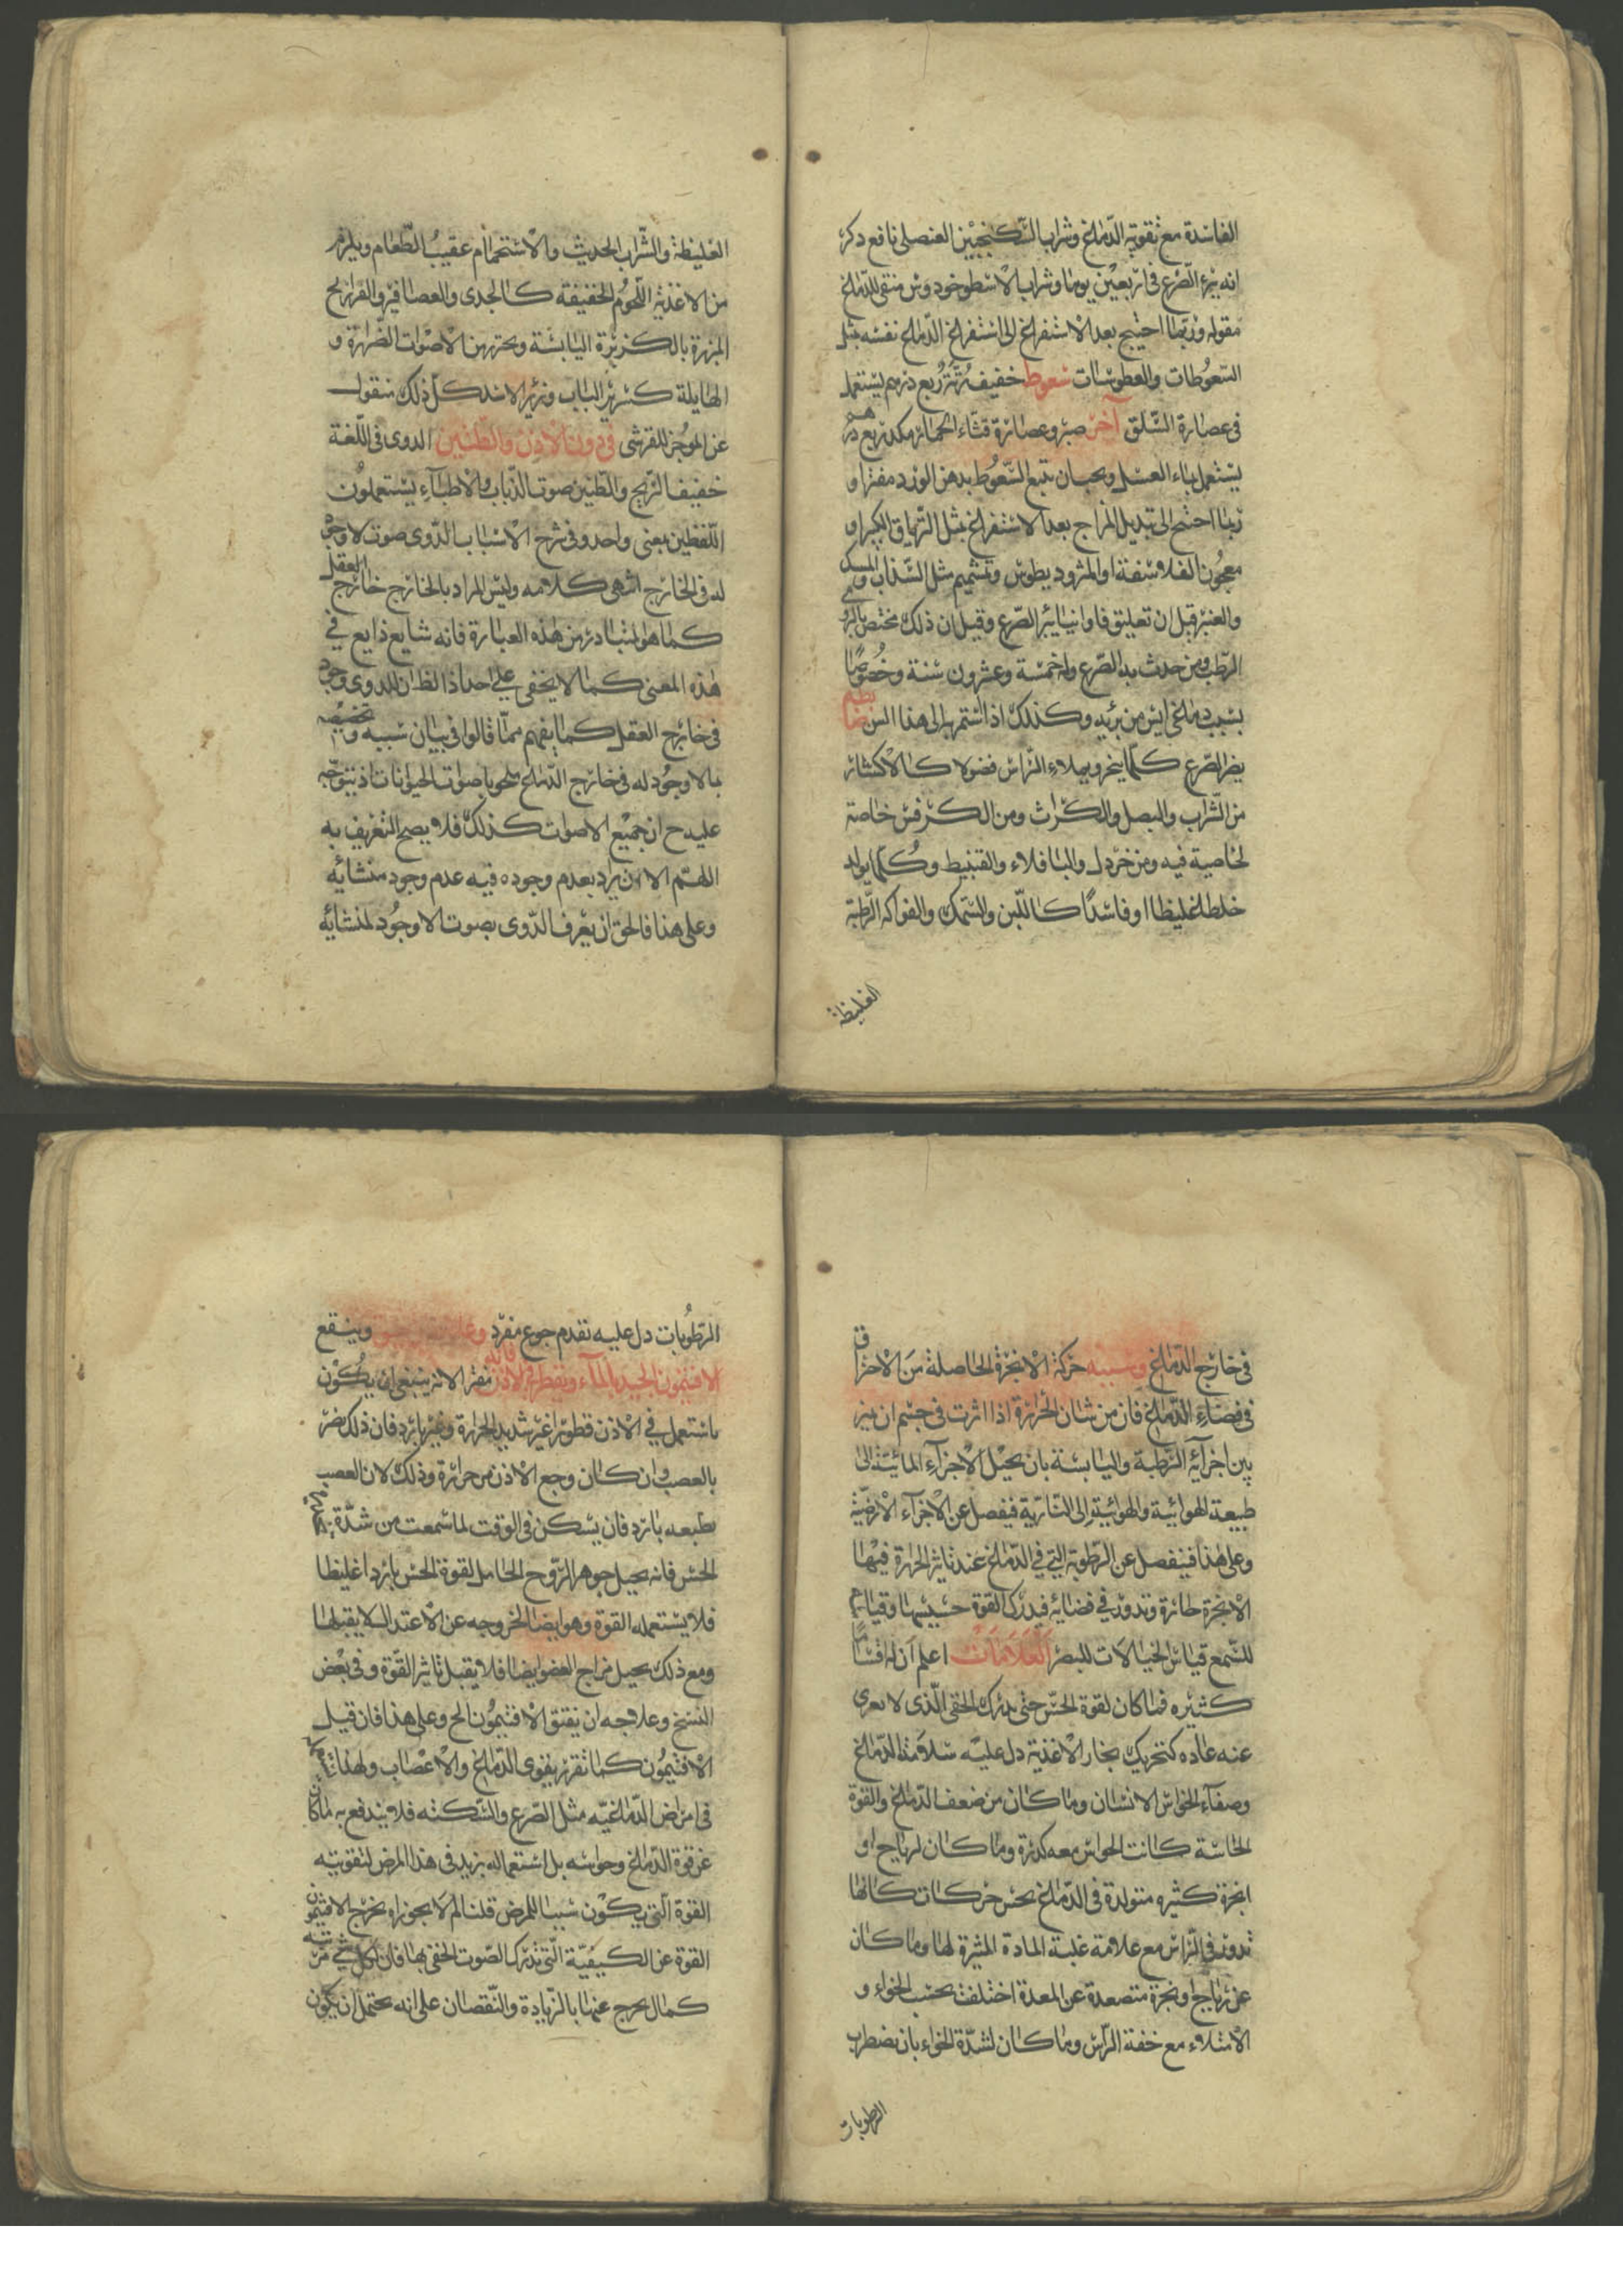 الفاسدة مع تقوية الدماغ وشراب السكنجبين العنصلى نافع ذكر
انه يبرء الصرع فى اربعين يوما وشراب الاسطوخودوس منقى للدماغ
مقوله وربما احتيج بعد الاستفراغ الى استفراغ الدماغ نفسه بمثل
السعوطات والعطوسات سعوط خفيف ربع درهم يستعمل
فى عصارة السلق آخر صبر وعصارة قثاء الحمار مكد ربع درهم
يستعمل بماء العسل ويجب ان تتبع السعوط بدهن الورد مفترا و
ربما احتيج الى تبديل المزاج بعد الاستفراغ بمثل الترياق الكبير او
معجون الفلاسفة او المثروديطوس وتشميم مثل السذاب والمسك
والعنبر قيل ان تعليق فاوانيا يبرء الصرع وقيل ان ذلك مختص بالرومى
الرطب ومن حدث به الصرع وله خمسة وعشرون سنة وخصوصا
بسبب دماغى ايس من برئه وكذلك اذا استمر به الى هذا السن
يضر الصرع كلما يبخر ويملاء الراس فضولا كالاكثار
من الشراب والبصل والكراث ومن الكرفس خاصة
لخاصية فيه ومن خردل والباقلاء والقنبيط وكلما يولد
خلطا غليظا او فاسدًا كاللبن والسمك والفواكه الرطبة
الغليظة
الغليظة والشراب الحديث والاستحمام عقيب الطعام ويلزم
من الاغذية اللحوم الخفيفة كالجدى والعصافير والفراريج
المبزرة بالكزبرة اليابسة ويحترز من الاصوات الضارة و
الهايلة كسرير الباب وزئير الاسد كل ذلك منقول
عن الموجز للقرشى فى دوى الاذن والطنين الدوى فى اللغة
حفيف الريح والطنين صوت الذباب والاطباء يستعملون
اللفظين بمعنى واحد وفى شرح الاسباب الدوى صوت لا وجود
له فى الخارج انتهى كلامه وليس المراد بالخارج خارج العقل
كما هو المتبادر من هذه العبارة فانه شايع ذايع فى
هذه المعنى كما لا يخفى على احد اذ الظ ان للدوى وجود
فى خارج العقل كما يفهم مما قالوا فى بيان سببه وتخصيصه
بالاوجود له فى خارج الدماغ باصوات الحيوانات اذ يتوجه
عليه ح ان جميع الاصوات كذلك فلا يصح التعريف به
اللهم الا ان يراد بعدم وجوده فيه عدم وجود منشائه
وعلى هذا فالحق ان يعرف الدوى بصوت لا وجود لمنشائه
فى خارج الدماغ وسببه حركة الابخرة الحاصلة من الاحتراق
فى فضاء الدماغ فان من شان الحرارة اذا اثرت فى جسم ان يميز
بين اجزائه الرطبة واليابسة بان يحيل الاجزاء المائية الى
طبيعة الهوائية والهوائية الى النارية فيفصل عن الاجزاء الارضية
وعلى هذا فينفصل عن الرطوبة التى فى الدماغ عند تاثير الحرارة فيها
الابخرة حارة وتدور فى فضائه فيدرك القوة حسيسها وقياسها
للسمع قياس الخيالات للبصر العلامات اعلم ان له اقسامًا
كثيره فما كان لقوة الحس حتى يدرك الخفى الذى لا يعرى
عنه عاده كتحريك بخار الاغذية دل عليه سلامة الدماغ
وصفاء الحواس الانسان وما كان من ضعف الدماغ والقوة
الحاسة كانت الحواس معه كدرة وما كان لرياح او
ابخرة كثيره متولدة فى الدماغ يحس حركات كانها
تدور فى الراس مع علامة غلبة المادة المثيرة لها وما كان
عن رياح او بخرة متصعدة عن المعدة اختلف بحسب الخواء و
الامتلاء مع خفة الراس وما كان لشدة الخواء بان يضطرب
الرطوبات
الرطوبات دل عليه تقدم جوع مفرد وينقع
الافتيمون الجيد بالماء ويقطر فى الاذن فانه مفترا لانه ينبغى ان يكون
ما يستعمل فى الاذن قطورا غير شديد الحرارة وغير بارد فان ذلك يضر
بالعصب وان كان وجع الاذن من حرارة وذلك لان العصب
بطبعه بارد فان يسكن فى الوقت لما سمعت من شدة
الحس فانه يحيل جوهر الروح الحامل لقوة الحس باردا غليظا
فلا يستعمله القوة وهو ايضا لخروجه عن الاعتدال لا يقبلها
ومع ذلك يحيل مزاج العضو ايضا فلا يقبل تاثير القوة وفى بعض
النسخ وعلاجه ان ينقع الافتيمون الخ وعلى هذا فان قيل
الافتيمون كما تقرر يقوى الدماغ والاعصاب ولهذا
فى امراض الدماغيه مثل الصرع والسكته فلا يندفع به ما كان
عن قوة الدماغ وحواسه بل استعماله يزيد فى هذا المرض لتقويته
القوة التى يكون سببا للمرض قلنا لم لا يجوز ان يخرج الافتيمون
القوة عن الكيفية التى تدرك الصوت الخفى بها فان لكل شىء مرتبه
كمال يخرج عنها بالزيادة والنقصان على انه يحتمل ان يكون